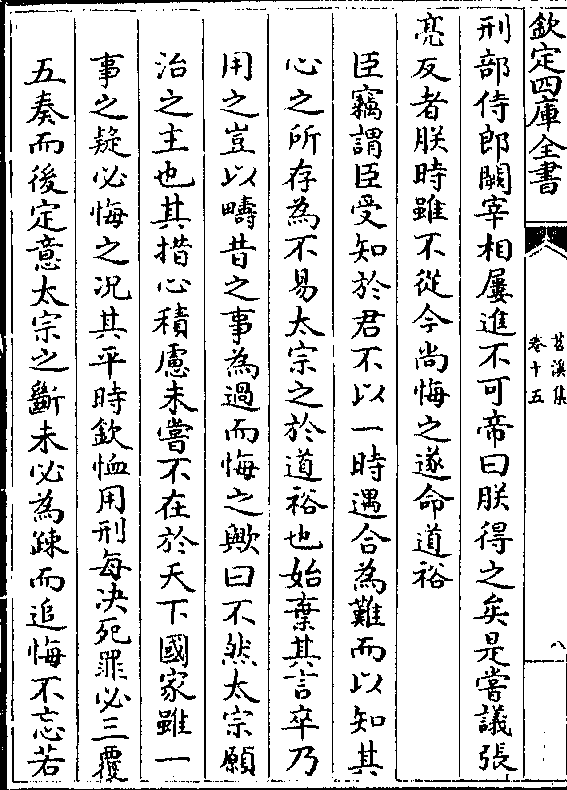 欽定四庫全書
苕溪集
卷十五
八
刑部侍郎闕宰相屢進不可帝曰朕得之矣是嘗議張
亮反者朕時雖不從今尚悔之遂命道裕
臣竊謂臣受知於君不以一時遇合為難而以知其
心之所存為不易太宗之於道裕也始棄其言卒乃
用之豈以疇昔之事為過而悔之歟曰不然太宗願
治之主也其措心積慮未嘗不在於天下國家雖一
事之疑必悔之况其平時欽恤用刑每决死罪必三覆
五奏而後定意太宗之斷未必為疎而追悔不忘若